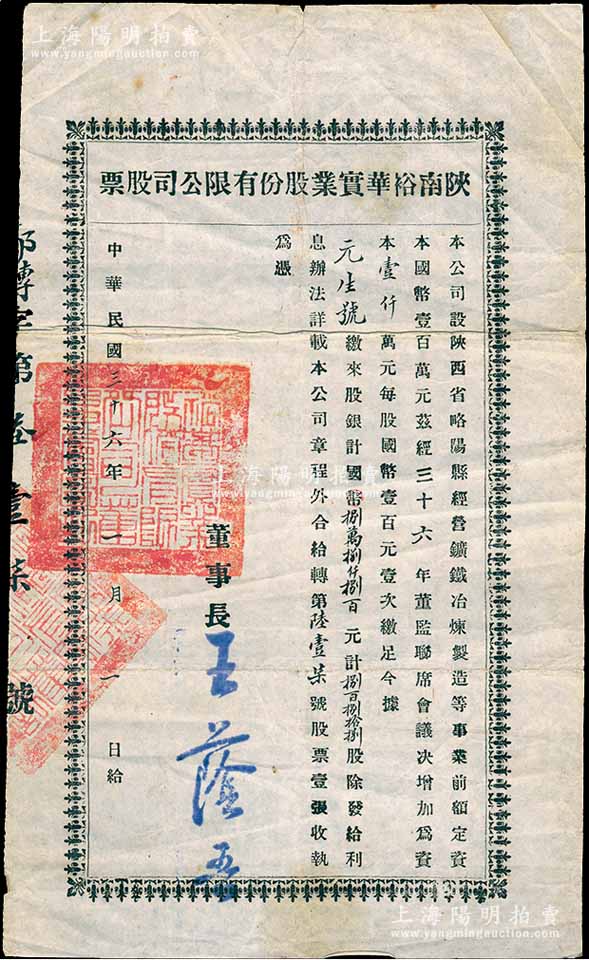 上海陽明拍賣
www.yangmingauction.com
陝南裕華實業股份有限公司股票
本公司設陝西省略陽縣經營鑛鐵冶煉製造等事業前額定資
本國幣壹百萬元茲經三十六年董監聯席會議決增加為資
本壹仟萬元每股國幣壹百元壹次繳足今據
元生號繳來股銀計國幣捌萬捌仟捌百元計捌百捌拾捌股除發給利
息辦法詳載本公司章程外合給轉第陸壹柒號股票壹張收執
爲憑
董事長王蔭吾
中華民國三十六年一月一日給
轉字第陸壹柒號
上海陽明拍賣
www.yangmingauction.com
上海陽明拍賣
www.yangmingauction.com